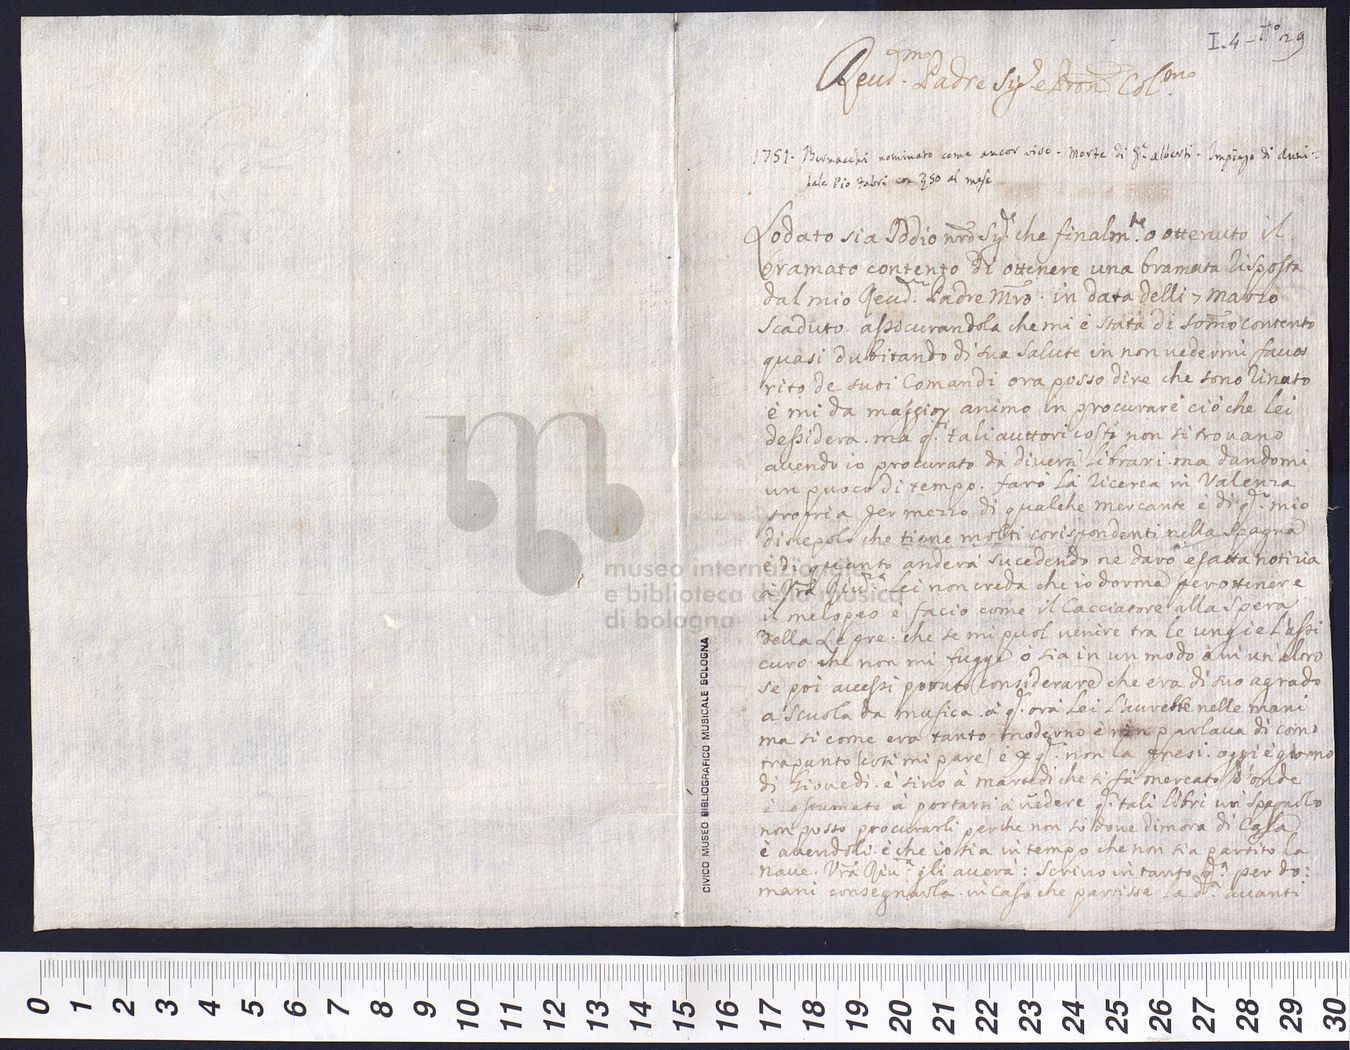 I.4 - 29
Reud.mo Padre Sig.e e Pron Col.mo
1751. Bernacchi nominato come ancor vivo - Morte di Alberti - Impiego di Anni-
bale Pio Fabri con 50 al mese
Lodato sia Iddio nro Sig.re che finalm.te o ottenuto il
bramato contento di ottenere una bramata risposta
dal mio Reud. Padre Mro. in data delli 7 Marzo
scaduto. assicurandola che mi è stata di sommo contento
quasi dubitando di sua salute in non vedermi favo
rito de suoi Comandi ora posso dire che sono rinato
è mi da maggior animo in procurare ciò che lei
dessidera. ma q.ti tali auttori costi non si trovano
avendo io procurato da diversi librari. ma dandomi
un puoco di tempo. farò la ricerca in Valenza
propria per mezzo di qualche mercante è di q.to mio
discepolo che tiene molti corispondenti nella Spagna
è di quanto anderà sucedendo ne darò esatta notizia
à Vrà Riu.za Lei non creda che io dorma per ottenere
il melopeo è facio come il Cacciatore alla Spera
della Lepre. che se mi puol venire tra le ungie l'assi
curo che non mi fugge ò sia in un modo ò in un altro
se poi avessi potuto considerare che era di suo agrado
a scuola da musica. à q. ora Lei l'avrebbe nelle mani
ma si come era tanto moderno è non parlava di contro
trapunto (così mi pare) è p q. non la presi. oggi è giorno
di Giovedi. è sino à martedi che si fà mercato d'onde
è costumato à portarsi à vedere q. tali libri un spagnolo
non posso procurarli perche non sò dove dimora di Casa
è avendoli. è che io sia in tempo che non sia partito la
nave. Vrà Riu.a gli averà: scrivo in tanto q.a per do:
mani consegnarla. in caso che partisse la d.a avanti
CIVICO MUSEO BIBLIOGRAFICO MUSICALE BOLOGNA
museo internazionale
e biblioteca della musica
di bologna
0 1 2 3 4 5 6 7 8 9 10 11 12 13 14 15 16 17 18 19 20 21 22 23 24 25 26 27 28 29 30